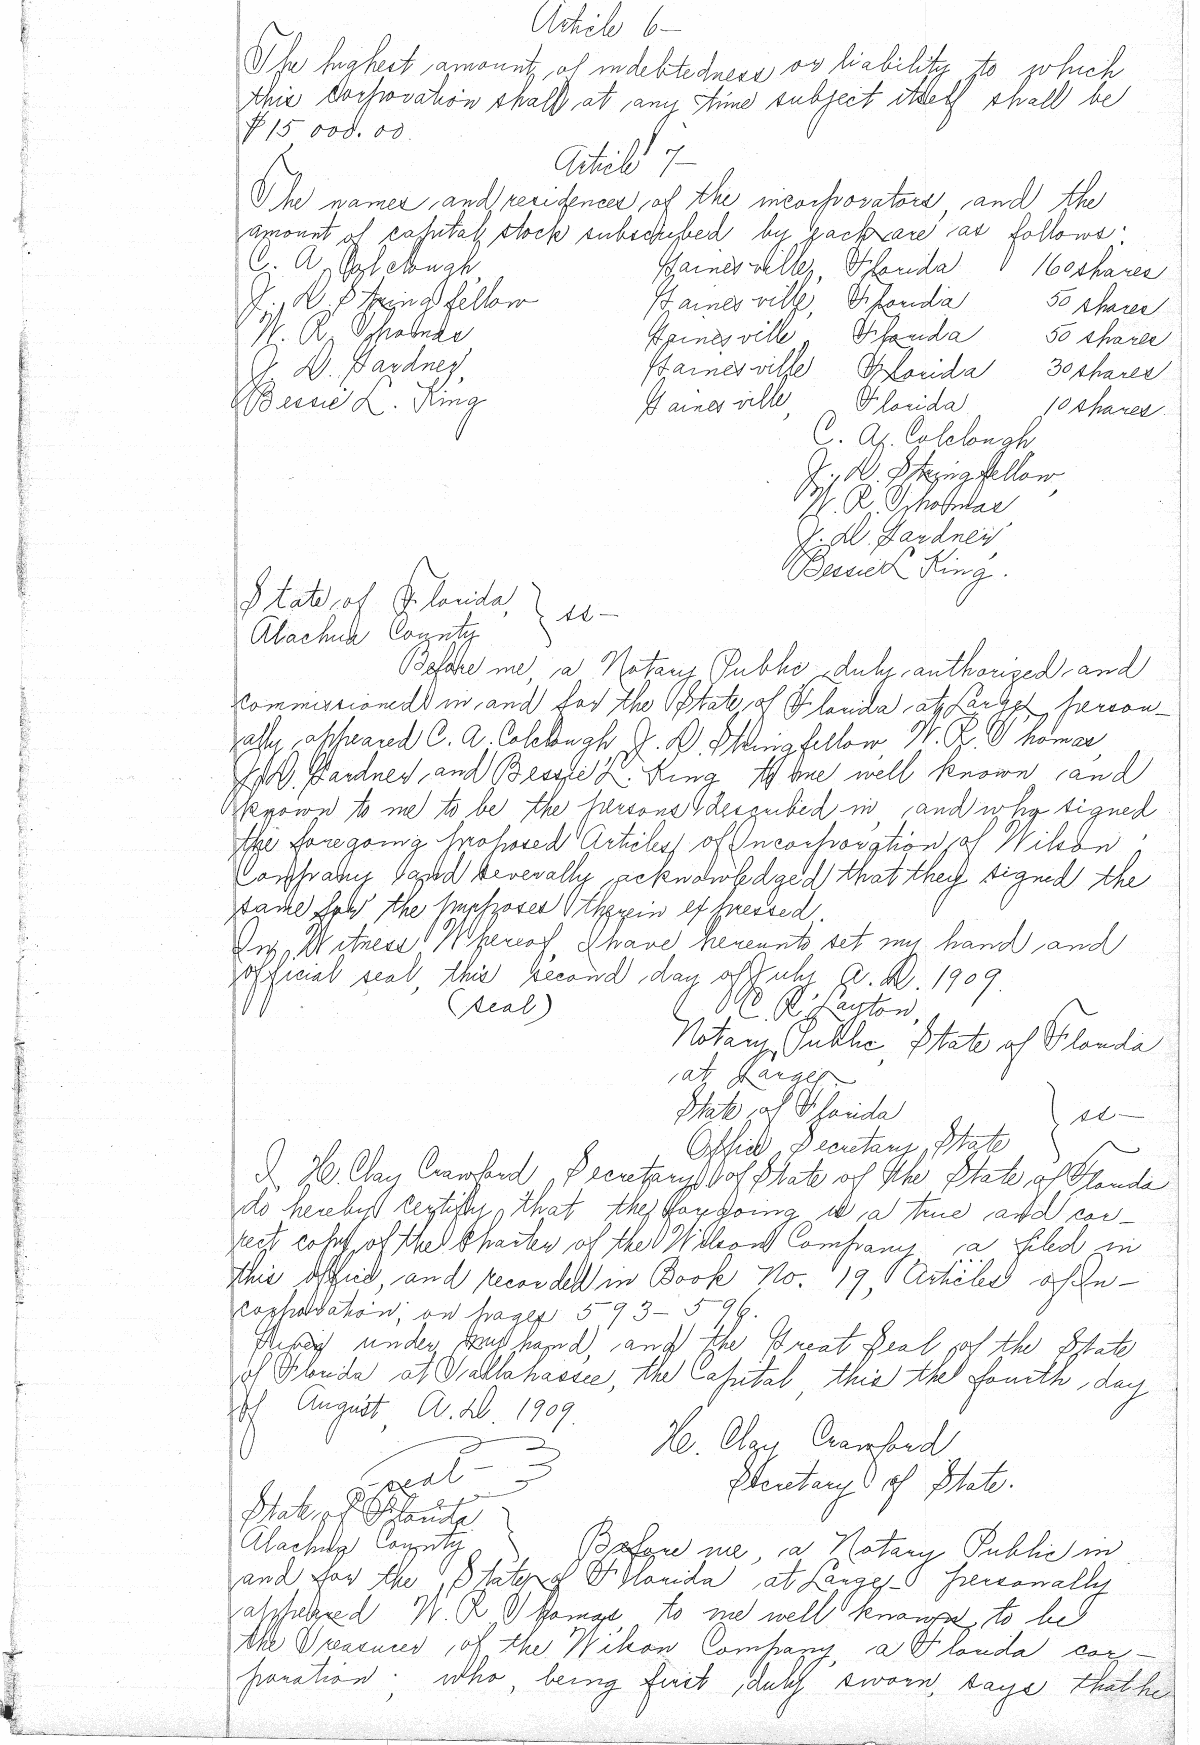 Article 6-
The highest amount of indebtedness or liability to which
this corporation shall at any time subject itself shall be
$15 000.00.
Article 7-
The names and residences of the incorporators, and the
amount of capital stock subscribed by each are as follows:
C. A. Colclough, Gainesville, Florida 160 shares
J. D. Stringfellow Gainesville, Florida 50 shares
W. R. Thomas Gainesville, Florida 50 shares
J. D. Gardner, Gainesville Florida 30 shares
Bessie L. King Gainesville, Florida 10 shares.
C. A. Colclough
J. D. Stringfellow,
W. R. Thomas
J. D. Gardner,
Bessie L King.
State of Florida, } ss-
Alachua County
Before me, a Notary Public, duly authorized and
commissioned in and for the State of Florida at Large, person-
ally appeared C. A. Colclough, J. D. Stringfellow, W. R. Thomas,
J. D. Gardner, and Bessie L. King to me well known and
known to me to be the persons described in, and who signed
the foregoing proposed Articles of Incorporation of Wilson
Company and severally acknowledged that they signed the
same for the purposes therein expressed.
In Witness Whereof, I have hereunto set my hand and
official seal, this second day of July A. D. 1909.
(seal) C. R. Layton,
Notary Public, State of Florida
at Large.
State of Florida } ss-
Office Secretary State
I, H. Clay Crawford, Secretary of State of the State of Florida
do hereby certify that the foregoing is a true and cor-
rect copy of the Charter of the Wilson Company, a filed in
this office, and recorded in Book No. 19, Articles of In-
corporation, on pages 593-596.
Given under my hand, and the Great Seal of the State
of Florida at Tallahassee, the Capital, this the fourth day
of August A. D. 1909.
H. Clay Crawford
-seal- Secretary of State.
State of Florida }
Alachua County Before me, a Notary Public in
and for the State of Florida at Large- personally
appeared W. R. Thomas, to me well known, to be
the Treasurer of the Wilson Company, a Florida cor-
poration; who, being first duly sworn, says that he